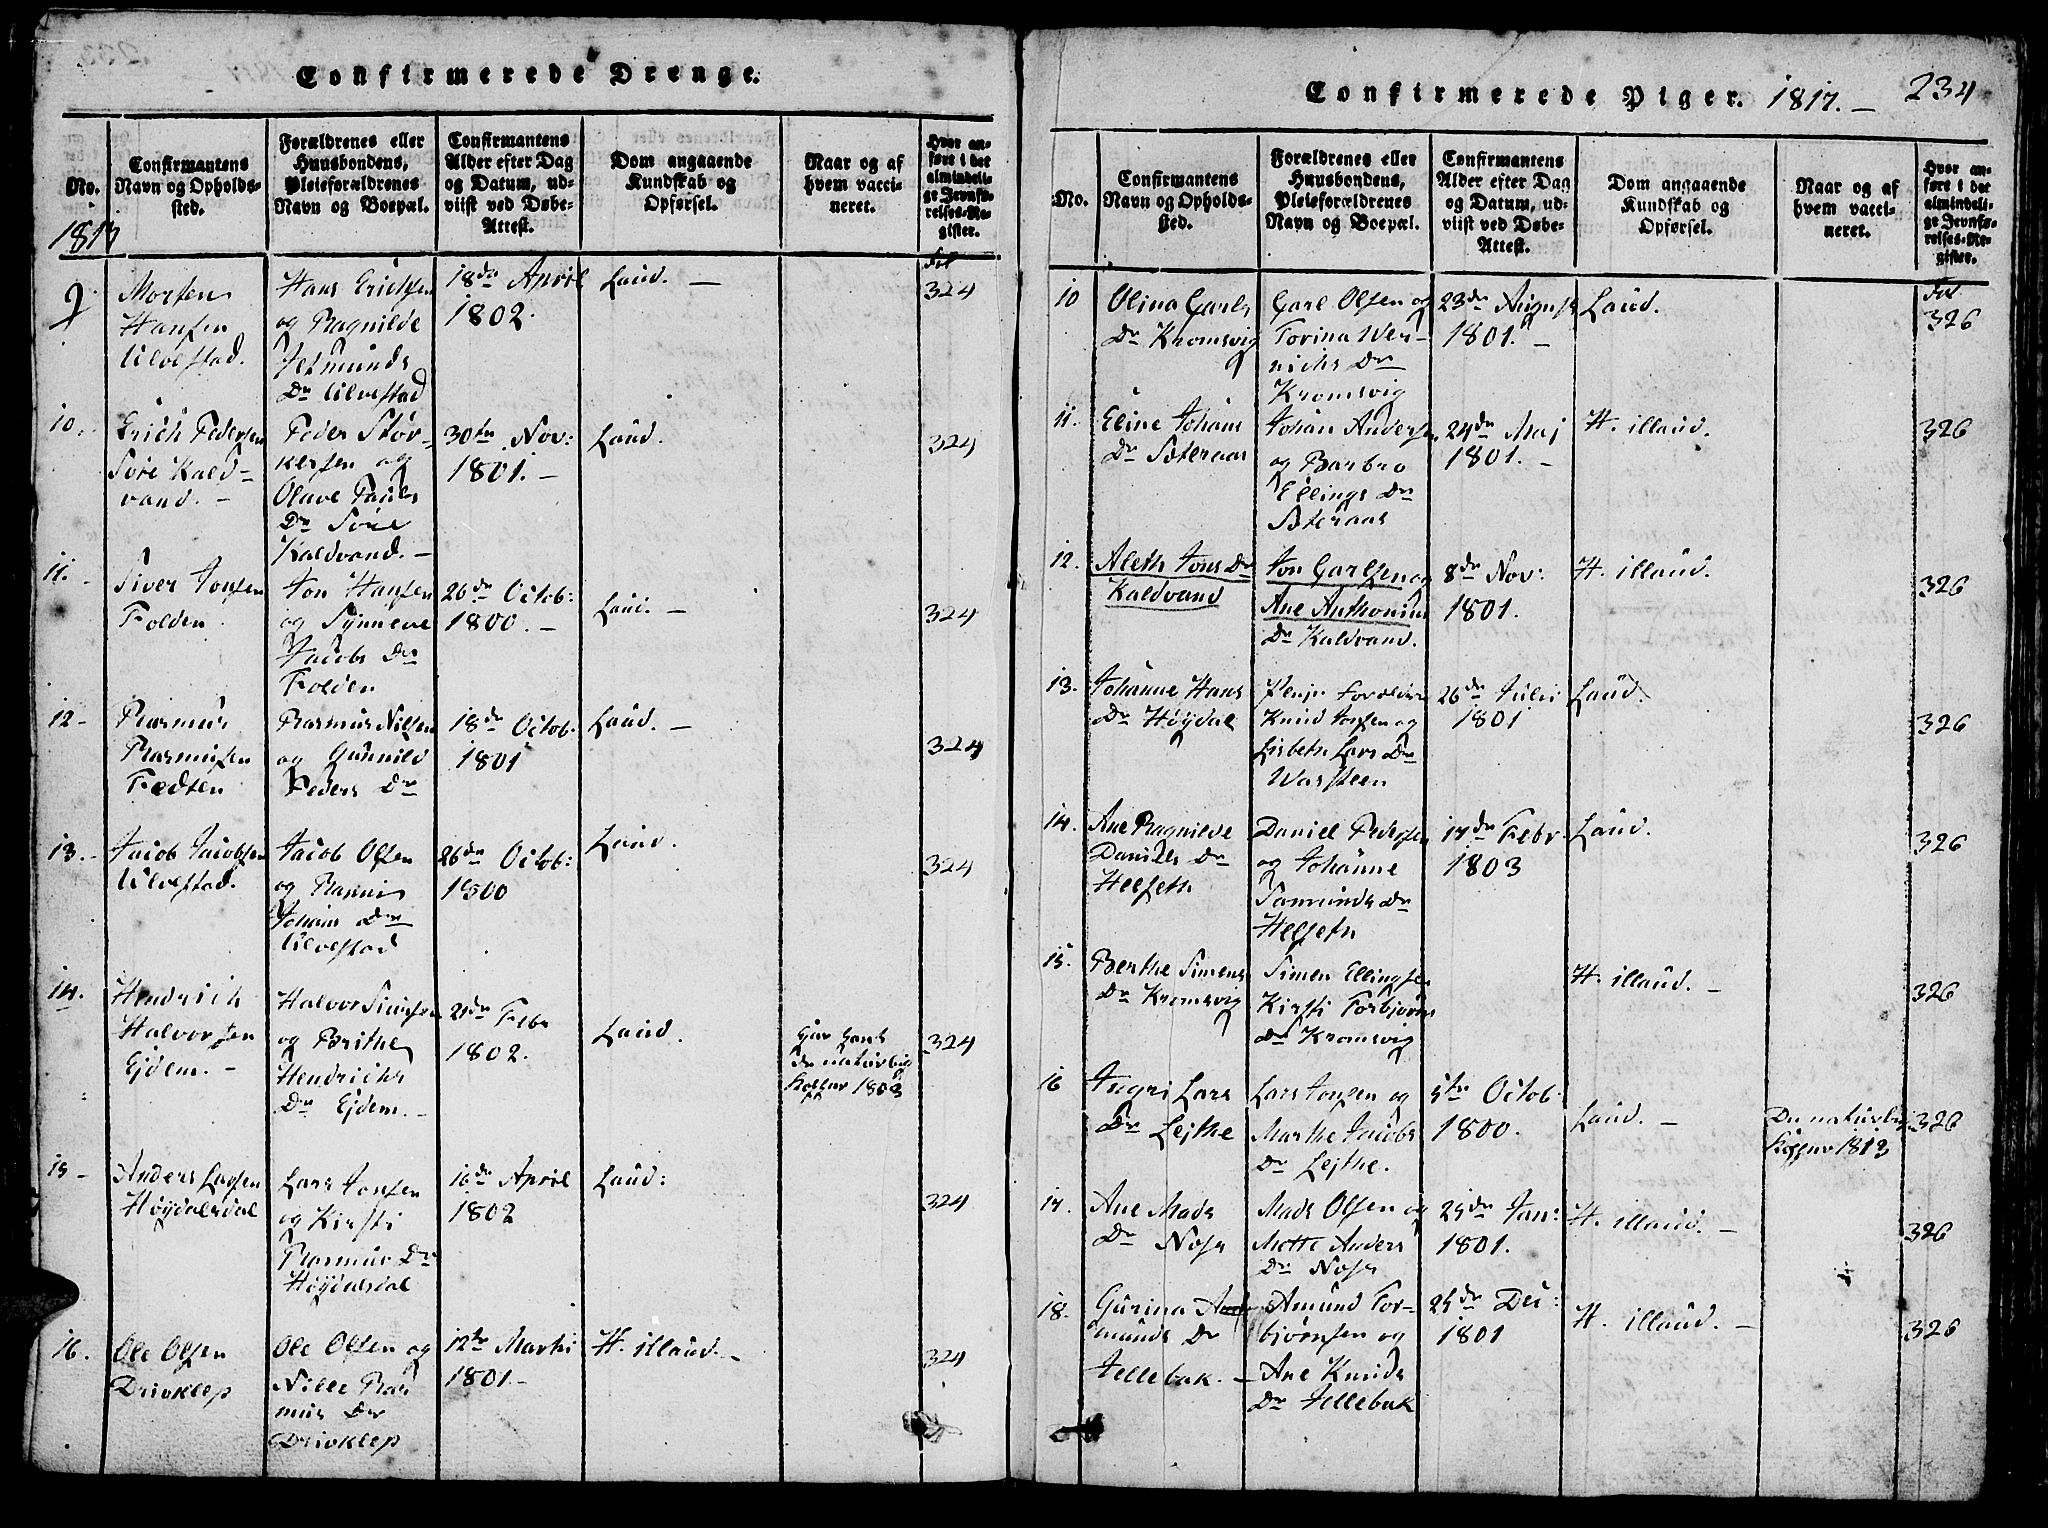 Confirmerede Drenge.
No.
Confirmantens
Navn og Opholds-
sted.
Forældrenes eller
Huusbondens,
Pleieforældrenes
Navn og Boepæl.
Confirmantens
Alder efter Dag
og Datum, ud-
viist ved Døbe-
Attest.
Dom angaaende
Kundskab og
Opførsel.
Naar og af
hvem vacci-
neret.
Hvor an-
ført i det
almindeli-
ge Jevnfø-
relses-Re-
gister.
1817
Fol
9.
Morten
Hansen
Ulvestad.
Hans Erichsen
og Ragnilde
Jetmunds
Dr Ulvestad
18de April
1802.
Laud. —
324
10.
Erich Pedersen
Søre Kald-
vand. -
Peder Stør-
kersen og
Olave Pauls
Dr Søre
Kaldvand. -
30te Nov:
1801. -
Laud.
324
11. -
Siver Jonsen
Folden
Jon Hansen
og Synneve
Jacobs Dr
Folden
26de Octob:
1800. -
Laud. -
324
12 -
Rasmus
Rasmusen
Fædten
Rasmus Nilsen
og Gunnild
Peders Dr
18de Octob.
1801
Laud. -
324
13. -
Jacob Jacobsen
Ulvestad.
Jacob Olsen
og
Johans Dr
Ulvestad
26de Octob:
1800
Laud.
324
14.
Hendrich
Halvorsen
Ejdem. -
Halvor Simsen
og Brithe
Hendrichs
Dr Ejdem. -
21de Febr
1802.
Laud.
de naturlig
Kopper 1803
324
15 -
Anders Larsen
Høydalsdal
Lars Jonsen
og Kirsti
Rasmus Dr
Høydalsdal
16de April
1802
Laud:
324
16.
Ole Olsen
Drivklep
Ole Olsen og
Nille Ras
mus Dr
Drivklep
12te Marti
1801. -
H. illaud. -
324
Confirmerede Piger. 1817. — 234
No.
Confirmantens
Navn og Opholds-
sted.
Forældrenes eller
Huusbondens,
Pleieforældrenes
Navn og Boepæl.
Confirmantens
Alder efter Dag
og Datum, ud-
viist ved Døbe-
Attest.
Dom angaaende
Kundskab og
Opførsel.
Naar og af
hvem vacci-
neret.
Hvor an-
ført i det
almindeli-
ge Jevnfø-
relses-Re-
gister.
Fol
10
Olina Carls
Dr Kromsvig
Carl Olsen og
Torina Wer-
nichs Dr
Kromsvig
23de August
1801. -
Laud.
326
11.
Eline Johans
Dr Sæteraas
Johan Andersen
og Barbro
Ellings Dr
Sæteraas
24de Maj
1801. -
H. illaud.
326
12.
Aleth Jons Dr
Kaldvand
Jon Carlsen og
Ane Anthonius
Dr Kaldvand.
8de Nov:
1801.
H. illaud.
326
13.
Johanne Hans
Dr Høydal
Plejeforældre
Knud Jonsen og
Lisbeth Lars Dr
Warsteen
26de Juli
1801
Laud.
326
14.
Ane Ragnilde
Daniels Dr
Helseth
Daniel Pedersen
og Johanne
Samunds Dr
Helseth
17de Febr
1803
Laud.
326
15.
Berthe Simens
Dr Kromsvig
Simen Ellingsen
Kirsti Torbjørns
Dr Kromsvig
H. illaud. -
326
16
Ingri Lars
Dr Lejthe
Lars Jonsen og
Marthe Jacobs
Dr Lejthe.
5te Octob.
1800.
Laud. -
De naturlig
Kopper 1813
326
17.
Ane Mads
Dr Nose
Mads Olsen og
Mette Anders
Dr Nose
25de Jan:
1801.
H. illaud. -
326
18.
Gurina
munds Dr
Jellebak. -
Amund Tor-
bjørnsen og
Ane Knuds
Dr Jellebak
25de Dec:
1801
H. illaud. -
326